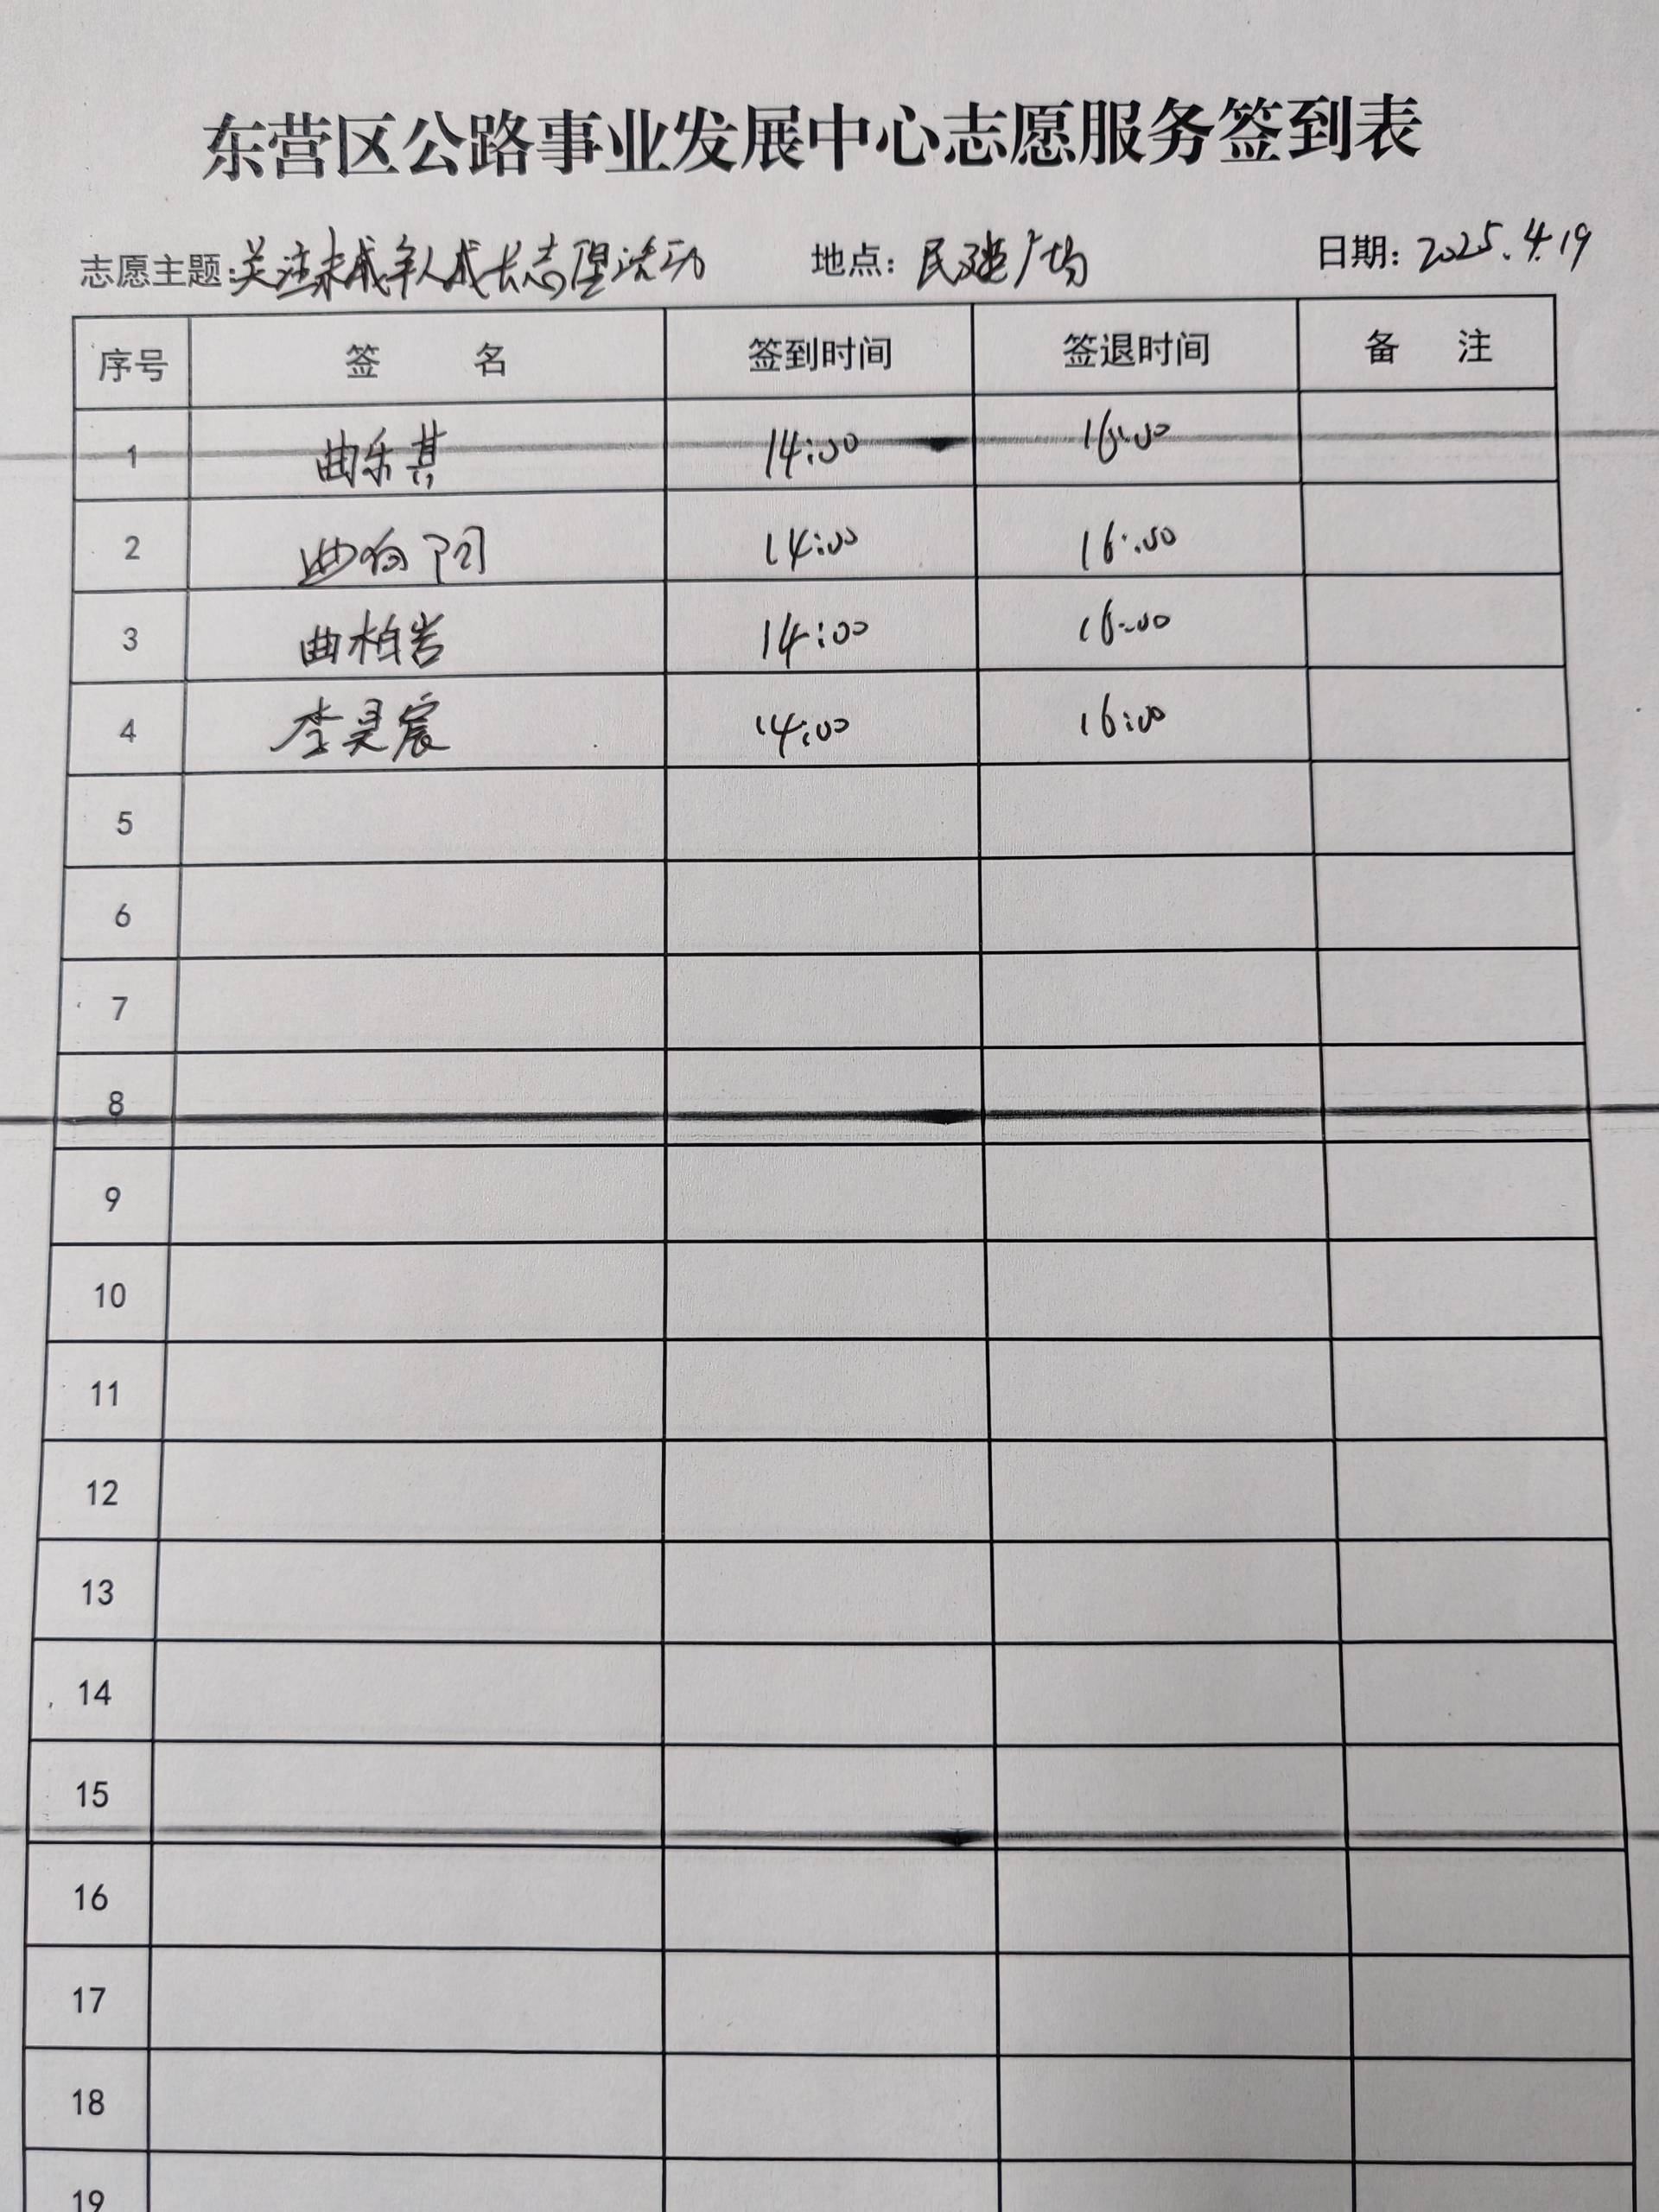 东营区公路事业发展中心志愿服务签到表
志愿主题：关注未成年人成长志愿活动 地点：民广场 日期：2025.4.19
序号 签 名 签到时间 签退时间 备 注
1 曲乐其 14:00 16:00
2 曲向阳 14:00 16:00
3 曲柏岩 14:00 16:00
4 李昊宸 14:00 16:00
5
6
7
8
9
10
11
12
13
14
15
16
17
18
19